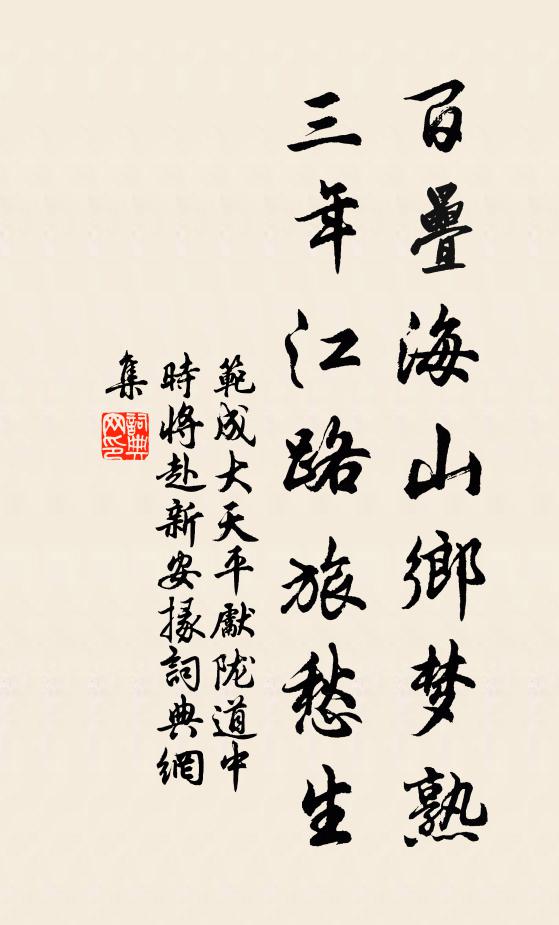 百疊海山鄉梦熟
三年江路旅愁生
範成大天平獻陇道中
時將赴新安掾詞典網
集
詞典
网印